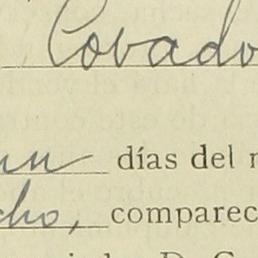 Covado
un días del
cho, comparec